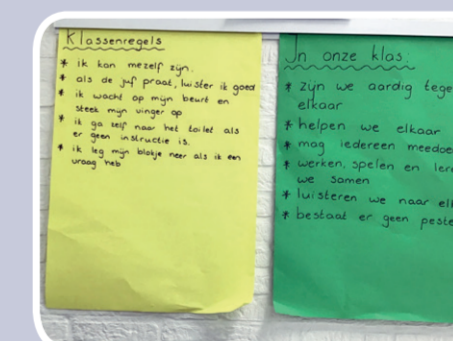 Klassenregels
* ik kan mezelf zijn.
* als de juf praat, luister ik goed
* ik wacht op mijn beurt en
steek mijn vinger op
* ik ga zelf naar het toilet als
er geen instructie is.
* ik leg mijn blokje neer als ik een
vraag heb
In onze klas:
* zijn we aardig tege
elkaar
* helpen we elkaar
* mag iedereen meedoe
* werken, spelen en ler
we samen
* luisteren we naar elk
* bestaat er geen peste